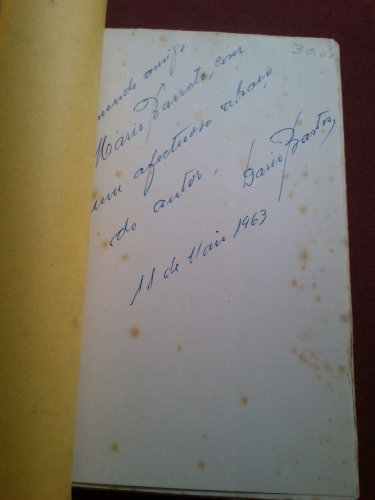 30.00
amigo
Mário Barreto, com
um afectuoso abraço
do autor, Dario Bastos
11 de Maio 1963